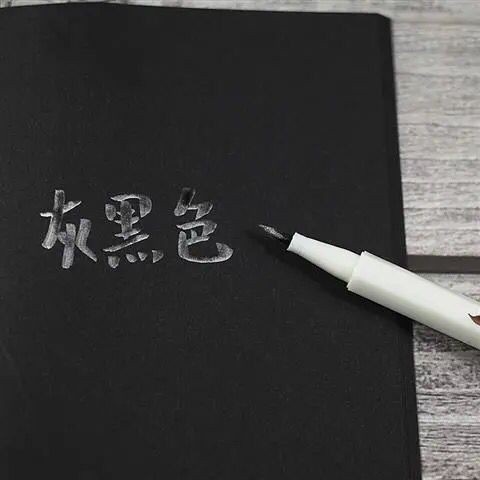 灰黑色